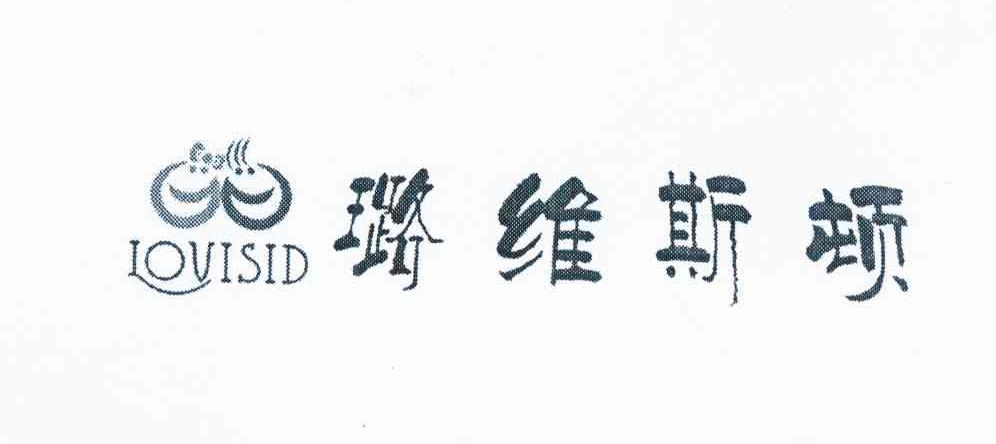 LOVISID 璐维斯顿